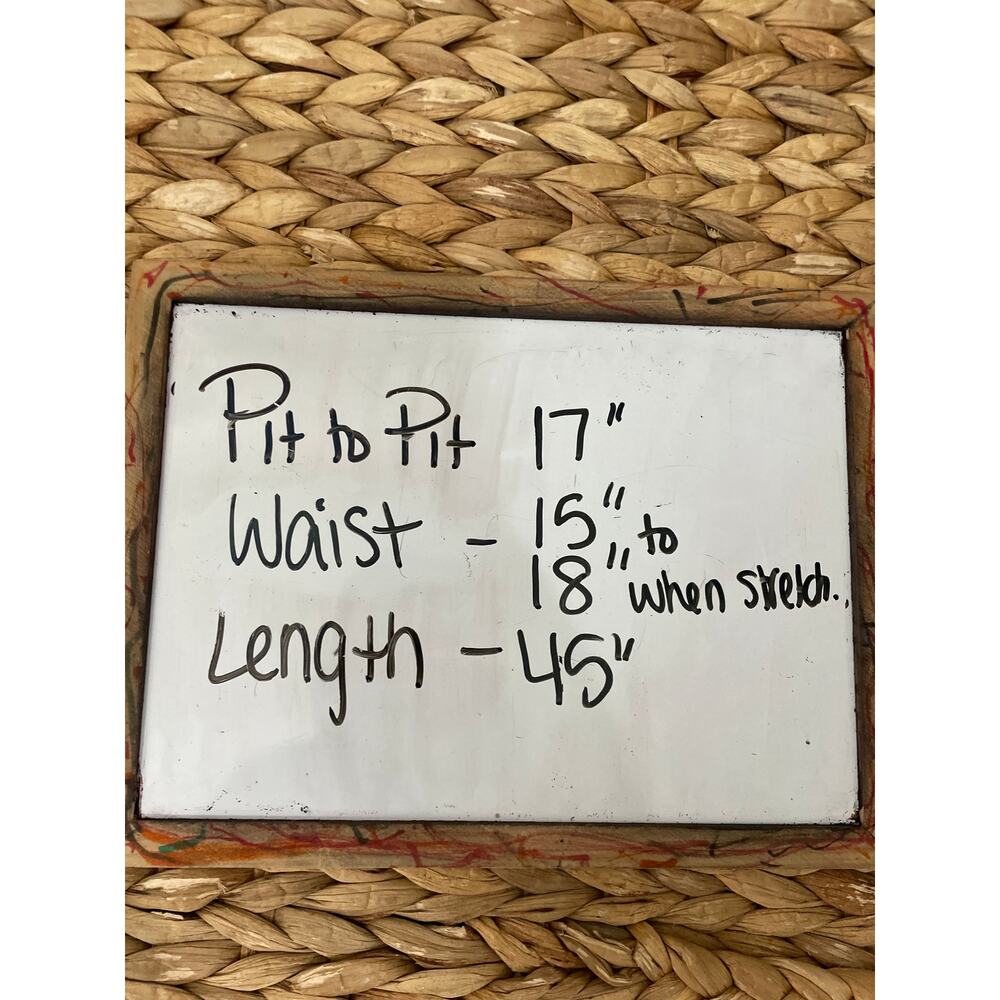 Pit to Pit 17"
Waist - 15" to
18" when stretch.
Length - 45"